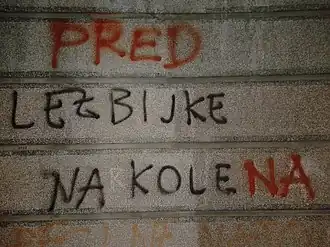 PRED
LEZBIJKE
NA KOLENA